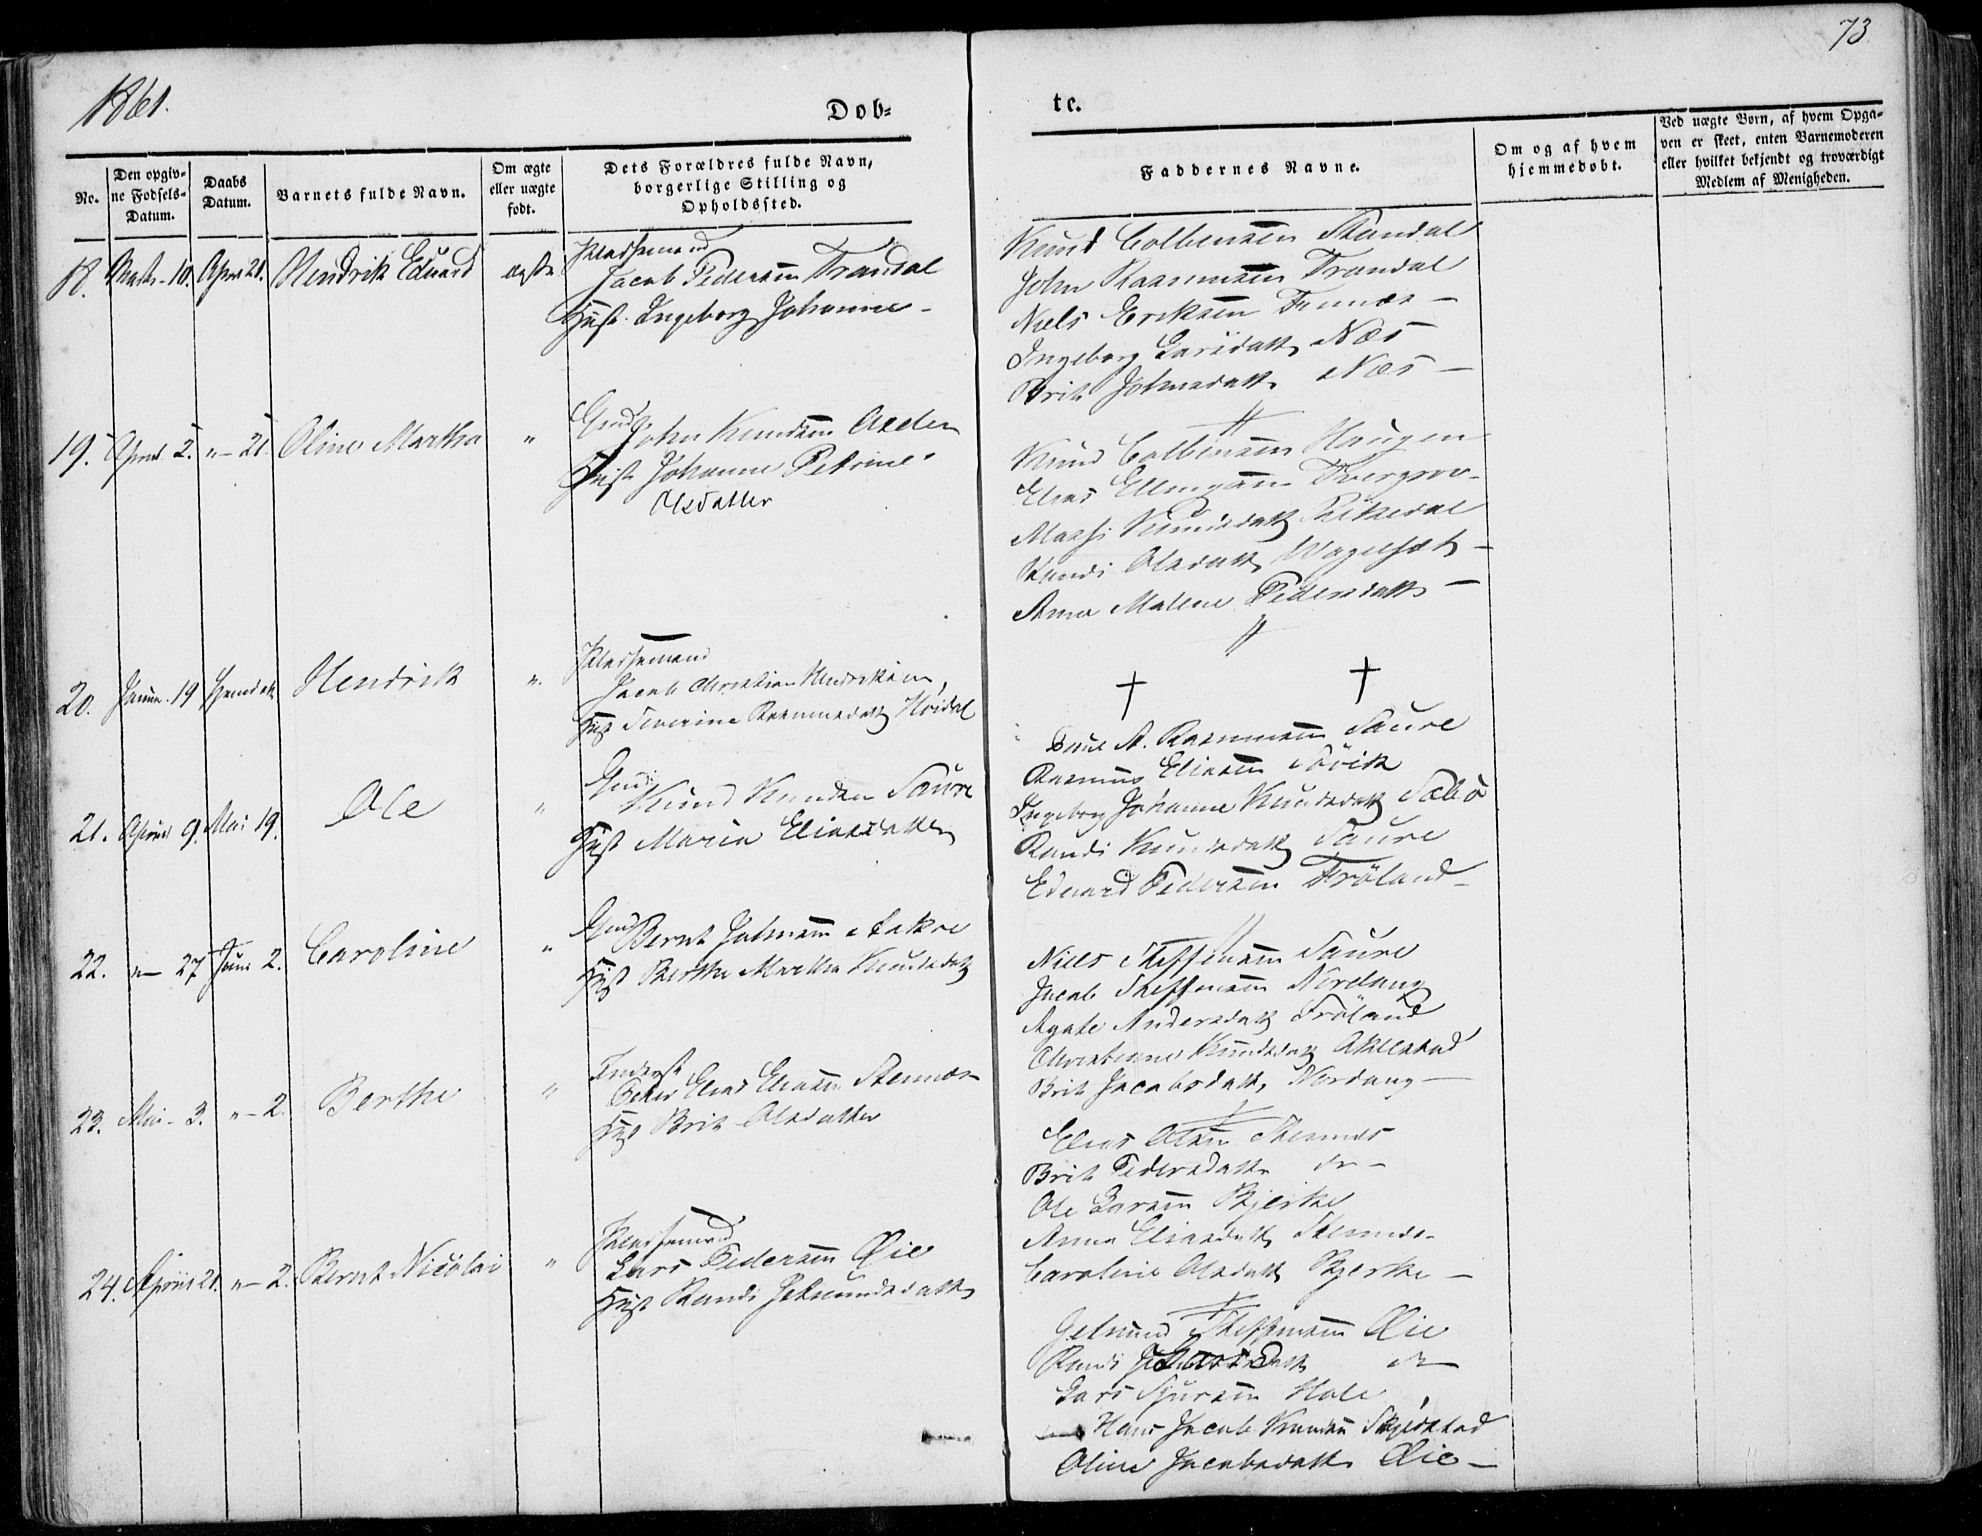 73.
1861.
Døb-
te.
No.
Den opgiv-
ne Fødsels-
Datum.
Daabs
Datum.
Barnets fulde Navn.
Om ægte
eller uægte
født.
Dets Forældres fulde Navn,
borgerlige Stilling og
Opholdssted.
Faddernes Navne.
Om og af hvem
hiemmedøbt.
Ved uægte Børn, af hvem Opga-
ven er skeet, enten Barnemoderen
eller hvilket bekjendt og troværdigt
Medlem af Menigheden.
18. Marts 10. April 21. Hendrik Eduard ægte
Pladsemand
Jacob Pedersen Trandal
Hust. Ingeborg Johanne -
Knud Colbensen Standal
John Rasmussen Trandal
Niels Eriksen
Ingeborg Larsdatt Næs
Brit Johnsdatt Næs -
19. April 2. "- 21. Oline Martha "
Gmd
John Knudsen Aarden
Hust Johanne Petrine
Olsdatter
Knud Colbensen Haugen
Elias Ellingsen
Knudsdatt
Randi Olsdatt
Anna Malene Pedersdatt -
20. Januar 19 Hendrik ".
Pladsemand
Jacob Christian Hendriksen,
Hust Severine Rasmusdatt Høidal
† †
21. April 9. Mai 19. Ole "
Gmd
Knud Knudsen Saure
Hust Maria Eliasdatter
A. Rasmussen Saure
Rasmus Eliasen
Ingeborg Johanne Knudsdatt Sæbø
Randi Knudsdatt Saure
Eduard Pedersen Frøland -
22. "- 27 Juni 2. Caroline "
Gmd Bernt Johnsen
Hust Berthe Martha Knudsdatt
Niels Steffensen Saure
Jacob Steffensen Nordang
Agate Andersdatt Frøland
Knudsdatt
Brit Jacobsdatt Nordang -
23. Mai - 3. "- 2. Berthe "
Inderst
Elias Eliasen Stennes
Hust Brit Olsdatter
Elias Olsen Stennes
Brit Pedersdatt do -
Ole Larsen Bjerke
Anna Eliasdatt Stennes -
Caroline Olsdatt Bjerke -
24. April 21. "- 2. Bernt Nicolai "
Pladsemand
Lars Pedersen Øie
Hust Randi Jetmundsdatt
Jetmund Steffensen Øie
Randi do
Lars Sjursen Hole
Hans Jacob Knudsen Skjeldstad
Oline Jacobsdatt Øie -